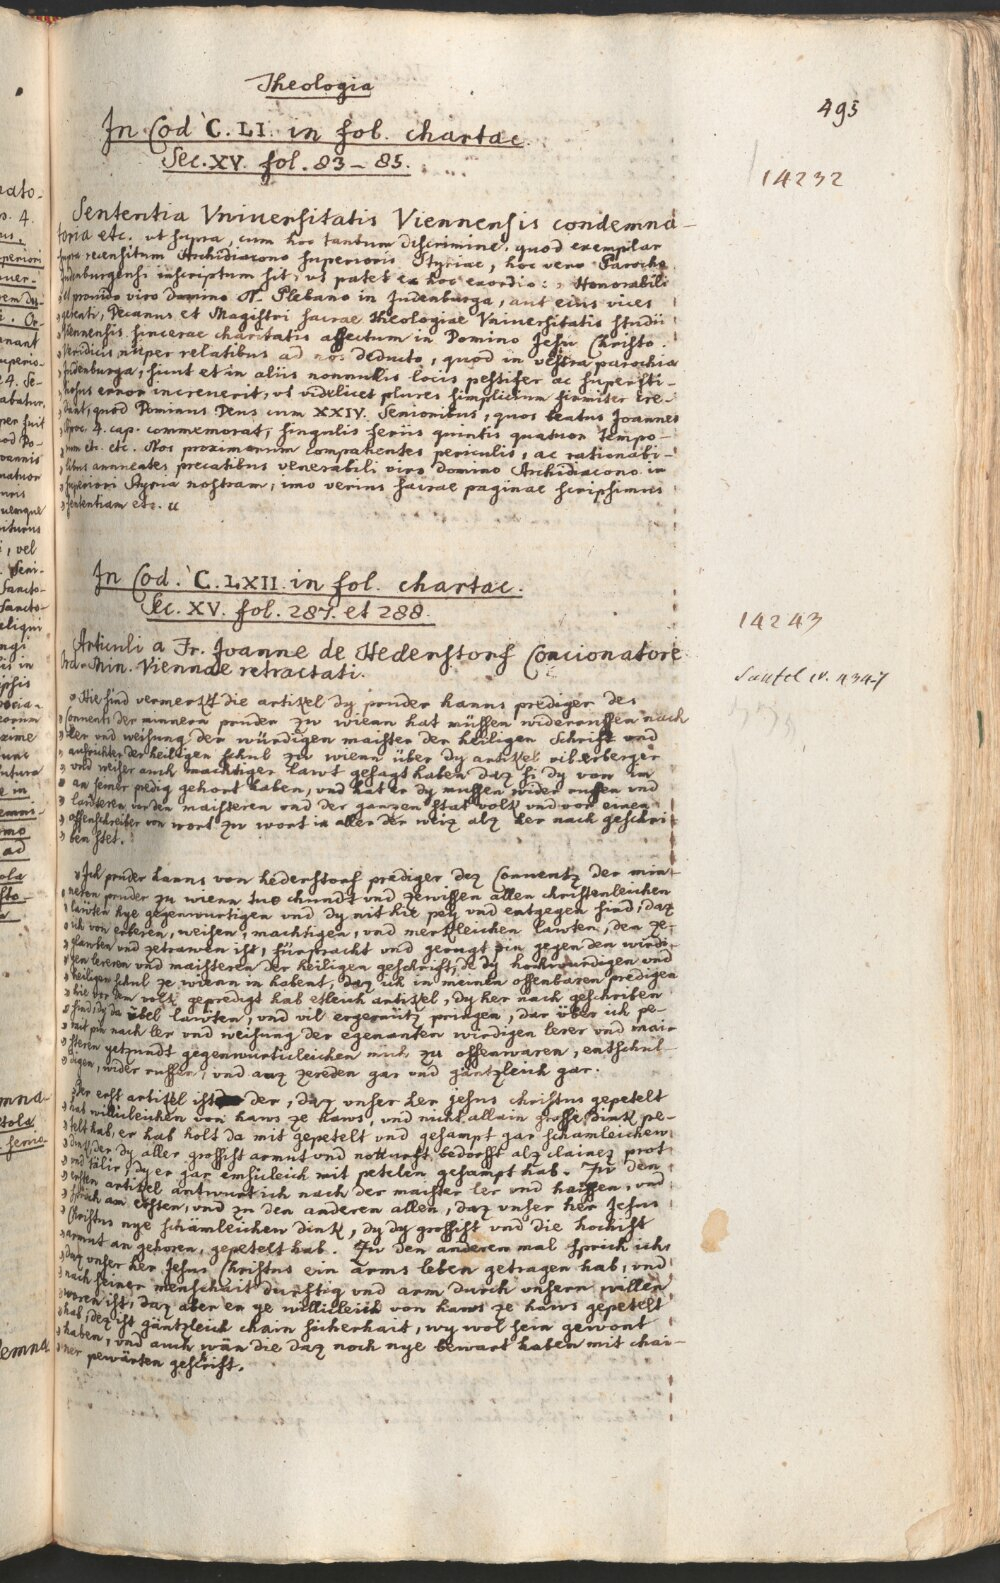 Theologia
495
In Cod. C. LI. in fol. chartac.
Sec. XV. fol. 83 – 85.
14232
Sententia Vniuersitatis Viennensis condemna-
toria etc. vt supra, cum hoc tantum discrimine, quod exemplar
supra recensitum Archidiacono superioris Styriae, hoc vero Parocho
Judenburgensi inscriptum sit, vt patet ex hoc exordio: Honorabili
et prouido viro domino N. Plebano in Judenburga, aut eius vices
gerenti, Decanus et Magistri sacrae Theologiae Vniuersitatis studii
Viennensis sincerae charitatis affectum in Domino Jesu Christo.
Veridicis nuper relatibus ad nos deducto, quod in vestra parochia
Judenburga, sicut et in aliis nonnullis locis pestifer ac supersti-
tiosus error increuerit, vt videlicet plures simplicium firmiter cre-
dant, quod Dominus Deus cum XXIV. Senioribus, quos beatus Joannes
Apoc. 4. cap. commemorat, singulis feriis quintis quatuor Tempo-
rum etc. etc. Nos proximorum compatientes periculis, ac rationabi-
libus annuentes precatibus venerabili viro Domino Archidiacono in
superiori Styria nostram, imo verius sacrae paginae scripsimus
sententiam etc.
In Cod. C. LXII. in fol. chartac.
Sec. XV. fol. 287. et 288.
14243
Articuli a Fr. Joanne de Hederstorf Concionatore
Ord. Min. Viennae retractati.
n. 347
Hie sind vermerkt die artikel dy pruder hanns prediger des
Conuents der minnern pruder zu wienn hat müssen wideruffen nach
ler vnd weisung der würdigen maister der heiligen Schrift vnd
aufrichter der heiligen schul zu wienn über dy artikel vil erberger
vnd weiser auch mächtiger lawt gesagt haben daz si dy von im
an seiner predig gehort haben, vnd hat er dy mussen wider ruffen vnd
lauteren vor den maisteren vnd der ganzen stat volk vnd vor einen
offenschreiber von wort zu wort in aller der weiz alz her nach geschri-
ben stet.
Ich pruder hanns von hederstorf prediger dez Conuentz der min-
neren pruder zu wienn tue chundt vnd zewissen allen christenleichen
läwten hye gegenwurtigen vnd dy nit hie pey vnd entgegen sind, daz
ich von erberen, weisen, machtigen, vnd merkleichen lawten, den ze-
glawben vnd zetrawen ist, fürpracht vnd gerugt pin gegen den wirdi-
gen lereren vnd maisteren der heiligen geschrift, de dy hochwurdigen vnd
heiligen schul ze wienn in habent, daz ich in meinen offenbaren predigen
hie vor dem volk gepredigt hab etleich artikel, dy her nach geschriben
sind, dy da übel lawten, vnd vil ergernütz pringen, dar über ich pe-
rait pin nach ler vnd weisung der egenanten wirdigen lerer vnd mai-
steren yetzundt gegenwurticleichen mich zu offenwaren, entschul-
digen, wider ruffen, vnd auz zereden gar vnd gäntzleich gar.
Der erst artikel ist der, daz vnser her jesus christus gepetelt
hat willicleichen von haws ze haws, vnd nicht allain grosse dink pe-
telt hab, er hab holt da mit gepetelt vnd gesampt gar schamleichew
dink, der dy aller grossist armut vnd notturft bedorfft alz clainez prot
vnd tälir, dy er gar emsicleich mit petelen gesampt hab. Zu dem
ersten artikel antwurt ich nach der maister ler vnd haissen, vnd
sprich am ersten, vnd zu den anderen allen, daz vnser her Jesus
Christus nye schämleichen dink, dy dy grossist vnd die hochist
armut an gehoren, gepetelt hab. Zu den anderen mal sprich ich,
daz vnser her Jesus Christus ein arms leben getragen hab, vnd
nach seiner menschait durftig vnd arm durch vnsern willen
woren ist, daz aber er ye willicleich von haws ze haws gepetelt
hab, dez ist gäntzleich chain sicherhait, wy wol sein gewont
haben, vnd auch wän die daz noch nye bewart haben mit chai-
ner pewärten geschrift.